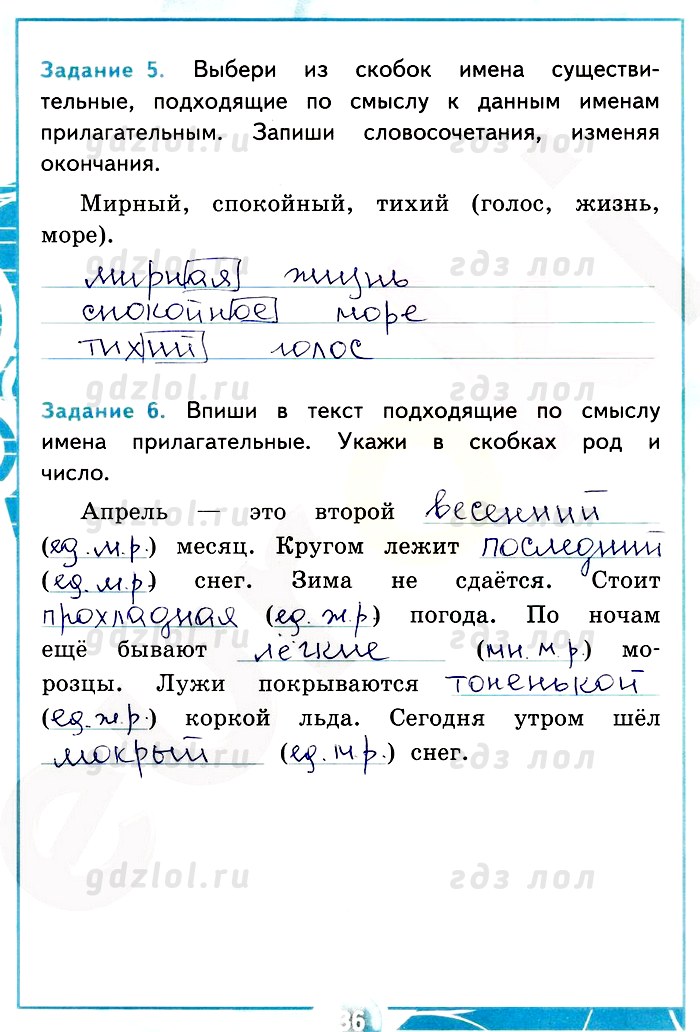 Задание 5. Выбери из скобок имена существи-
тельные, подходящие по смыслу к данным именам
прилагательным. Запиши словосочетания, изменяя
окончания.
gdzlol.ru гдз лол
Мирный, спокойный, тихий (голос, жизнь,
море).
мирная жизнь
gdzlol.ru гдз лол
спокойное море
тихий голос
gdzlol.ru гдз лол
Задание 6. Впиши в текст подходящие по смыслу
имена прилагательные. Укажи в скобках род и
число.
Апрель — это второй весенний
gdzlol.ru гдз лол
(ед.м.р.) месяц. Кругом лежит последний
(ед.м.р.) снег. Зима не сдаётся. Стоит
прохладная (ед.ж.р.) погода. По ночам
gdzlol.ru гдз лол
ещё бывают лёгкие (мн.м.р.) мо-
розцы. Лужи покрываются тоненькой
(ед.ж.р.) коркой льда. Сегодня утром шёл
мокрый (ед.м.р.) снег.
gdzlol.ru гдз лол
gdzlol.ru гдз лол
86